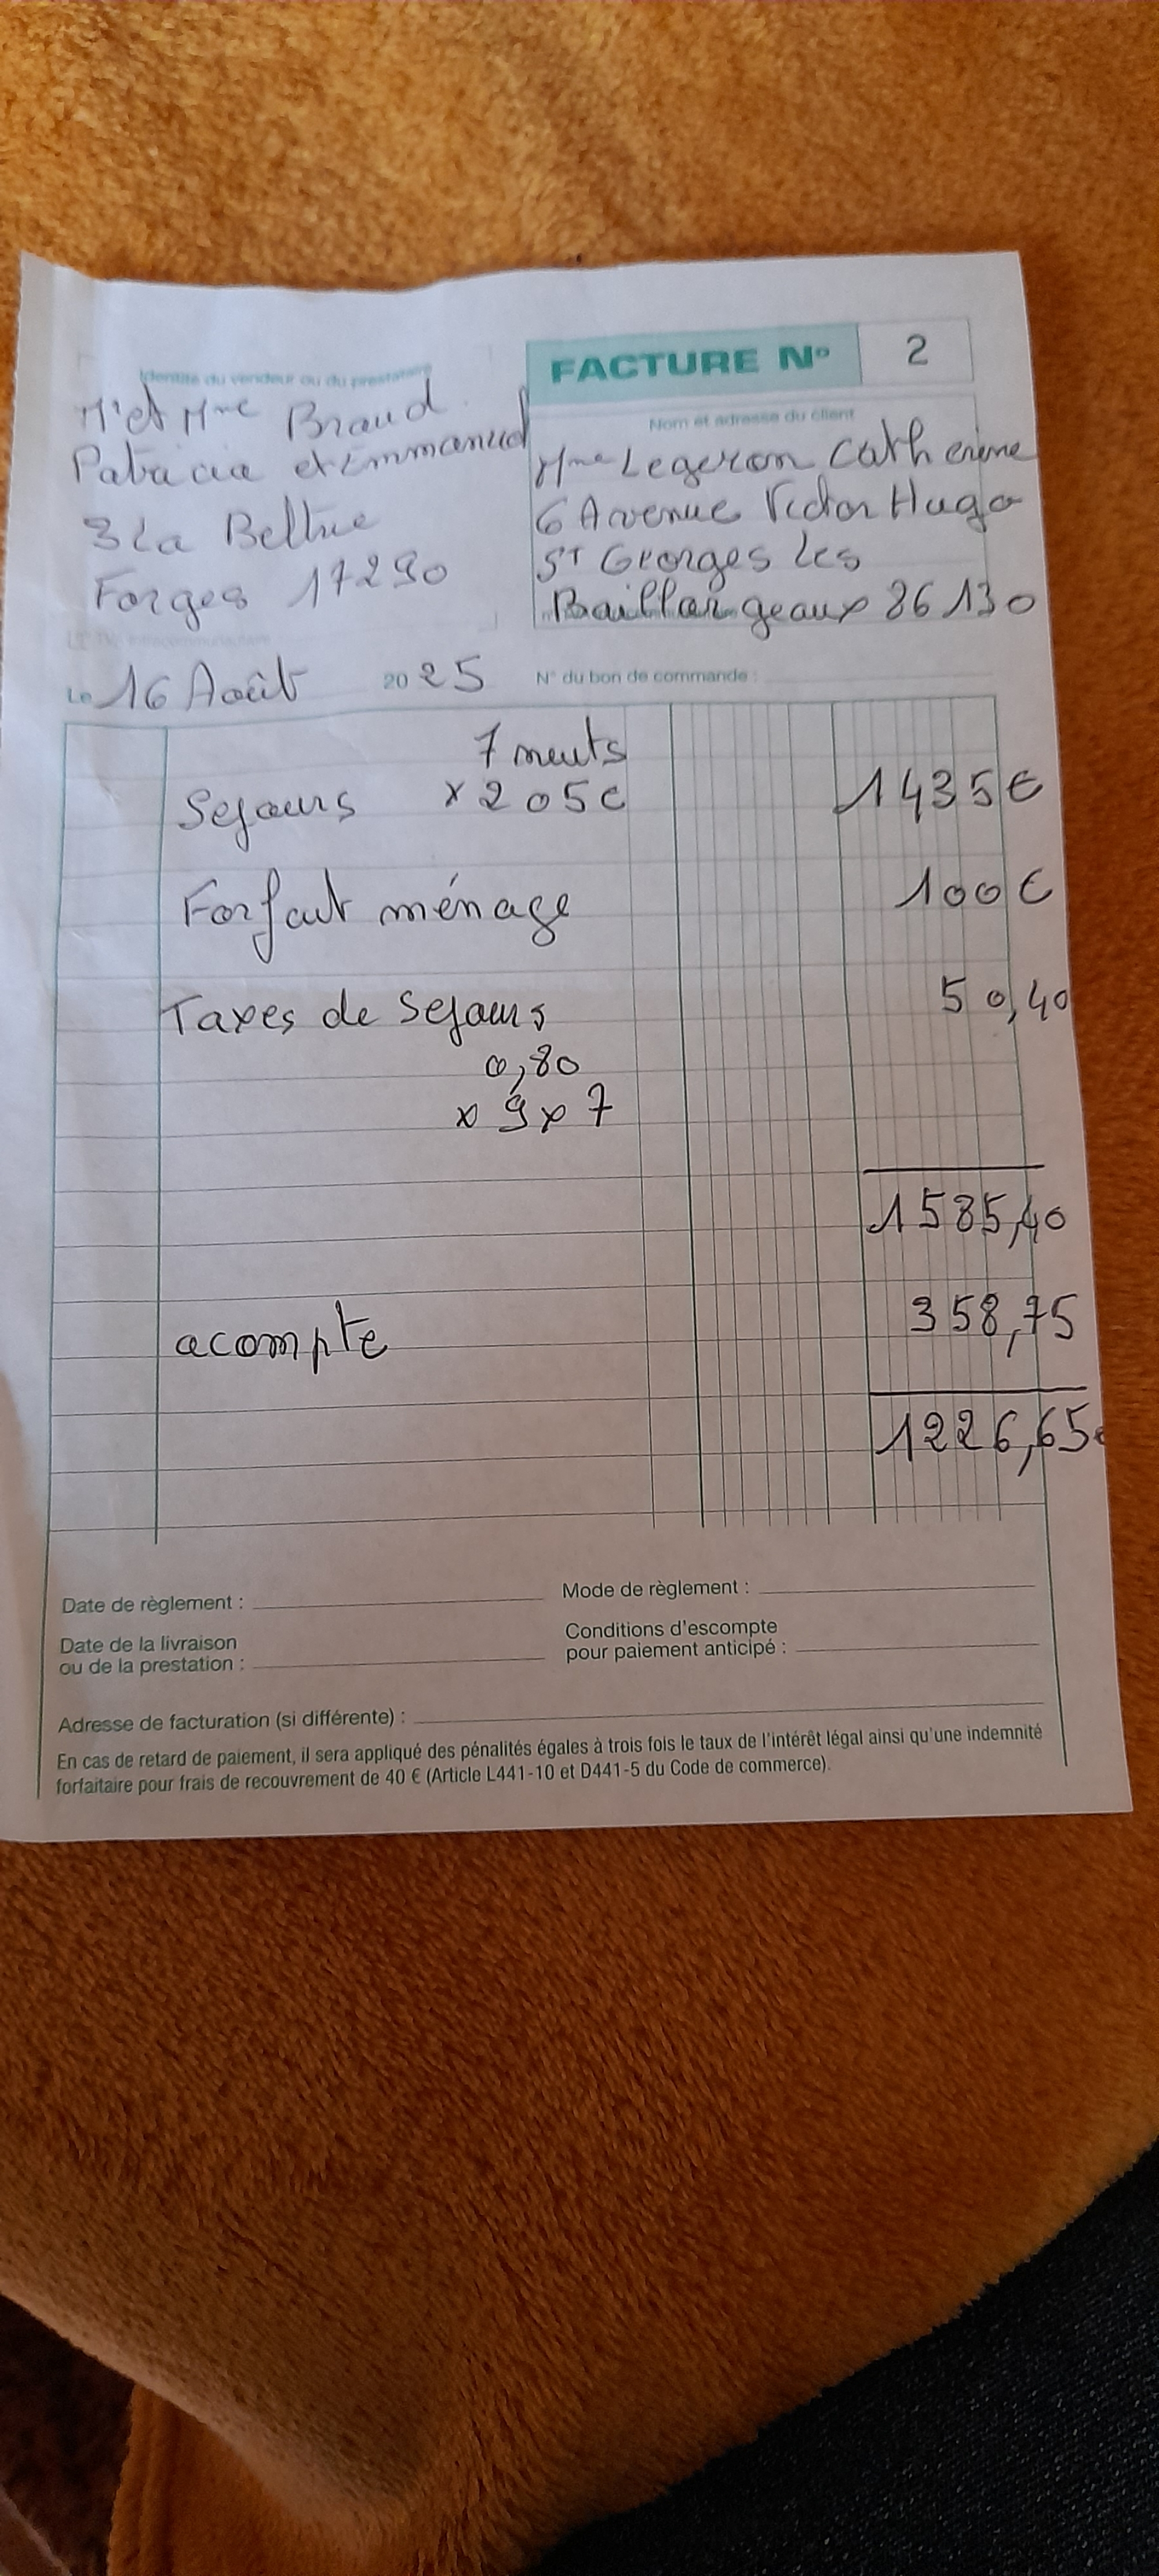 FACTURE N° 2
Identité du vendeur ou du prestataire
Mr et Mme Braud
Patricia et Emmanuel
3 La Beltue
Forges 17290
Nom et adresse du client
Mme Legeron Catherine
6 Avenue Victor Hugo
St Georges les
Baillargeaux 86130
Le 16 Août 2025 N° du bon de commande :
7 nuits
Sejours x 205€ 1435€
Forfait ménage 100€
Taxes de Sejours 50,40
0,80
x 9 x 7
1585,40
acompte 358,75
1226,65€
Date de règlement : Mode de règlement :
Date de la livraison
ou de la prestation :
Conditions d'escompte
pour paiement anticipé :
Adresse de facturation (si différente) :
En cas de retard de paiement, il sera appliqué des pénalités égales à trois fois le taux de l'intérêt légal ainsi qu'une indemnité
forfaitaire pour frais de recouvrement de 40 € (Article L441-10 et D441-5 du Code de commerce).